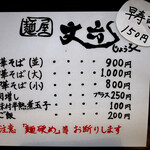 麺屋 丈六
じょうろく
早寿司
150円
華そば(並) ・・・ 900円
華そば(大) ・・・ 1,000円
華そば(小) ・・・ 800円
増し ・・・ プラス 250円
味付半熟煮玉子 ・・ 100円
ご飯 ・・・ 200円
注意 「麺硬め」等 お断りします